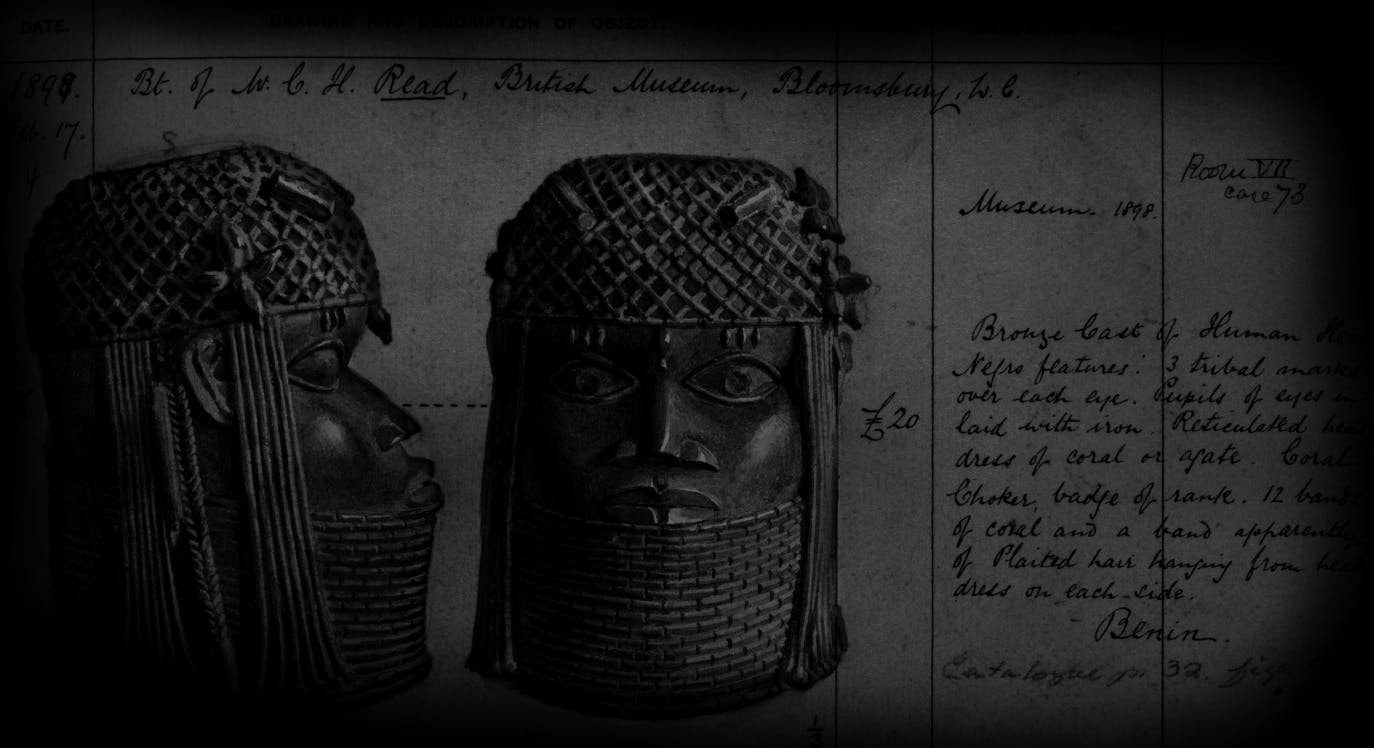 DATE.
DRAWING AND DESCRIPTION OF OBJECT.
1898.
Bt. of W. C. H. Read, British Museum, Bloomsbury, W.C.
17.
Room VII
case 73
Museum. 1898.
£20
Bronze Cast of Human
Negro features: 3 tribal marks
over each eye. Pupils of eyes in-
laid with iron. Reticulated head
dress of coral or agate. Coral
Choker, badge of rank. 12 bands
of coral and a band apparently
of Plaited hair hanging from head
dress on each side.
Benin.
Catalogue p. 32. figs.